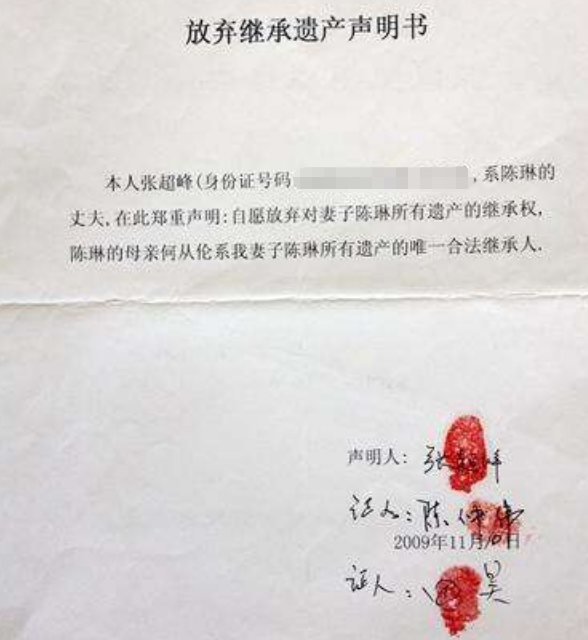 放弃继承遗产声明书
本人张超峰(身份证号码 ,系陈琳的
丈夫,在此郑重声明:自愿放弃对妻子陈琳所有遗产的继承权,
陈琳的母亲何从伦系我妻子陈琳所有遗产的唯一合法继承人.
声明人: 张超峰
证人:陈
2009年11月10日
证人: 昊